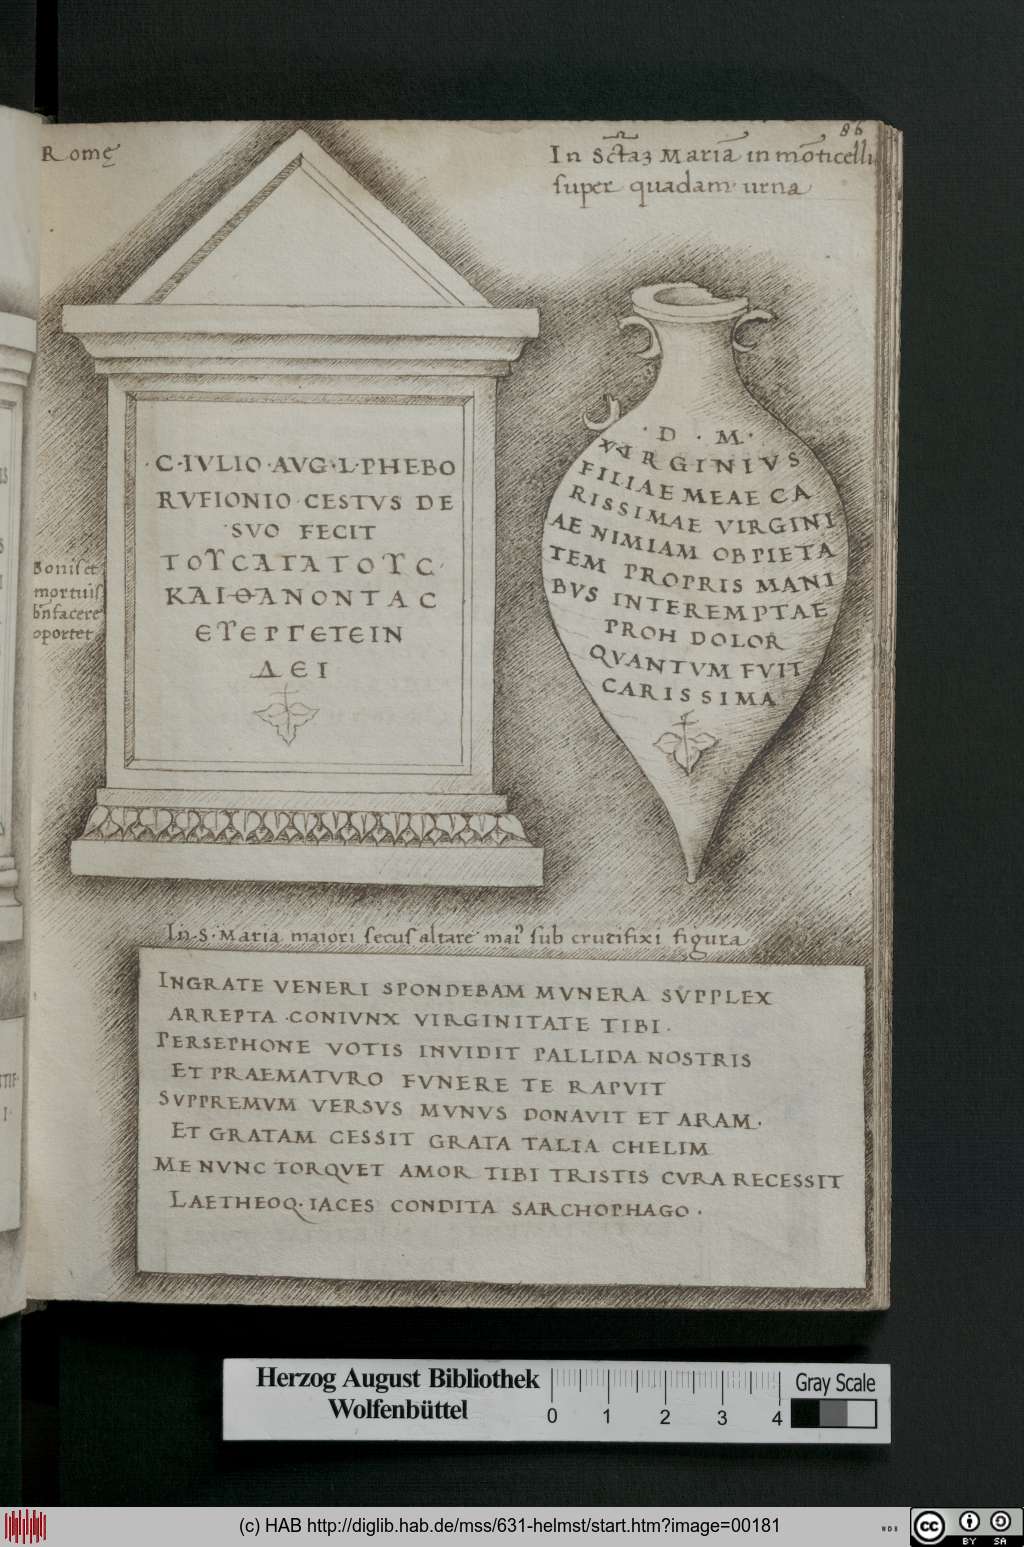 86
Romę
In Sctaȝ Maria in moticelli
super quadam urna
·C·IVLIO·AVG·L·PHEBO
RVFIONIO·CESTVS DE
·SVO FECIT
ΤΟΥϹΑΓΑΤΟΥϹ·
ΚΑΙΘΑΝΟΝΤΑϹ
ЄΥЄΡΓЄΤЄΙΝ
ΔЄΙ
Bonis et
mortuis
bn facere
oportet
·D·M·
VIRGINIVS
FILIAE MEAE CA
RISSIMAE VIRGINI
AE NIMIAM OB PIETA
TEM PROPRIS MANI
BVS INTEREMPTAE
PROH DOLOR
QVANTVM FVIT
CARISSIMA
In·S·Maria maiori secus altare mai⁹ sub crucifixi figura
INGRATE VENERI SPONDEBAM MVNERA SVPPLEX
ARREPTA·CONIVNX VIRGINITATE TIBI·
PERSEPHONE VOTIS INVIDIT PALLIDA NOSTRIS
ET PRAEMATVRO FVNERE TE RAPVIT
SVPPREMVM VERSVS MVNVS DONAVIT ET ARAM·
ET GRATAM CESSIT GRATA TALIA CHELIM
ME NVNC TORQVET AMOR TIBI TRISTIS CVRA RECESSIT
LAETHEOQ·IACES CONDITA SARCHOPHAGO·
Herzog August Bibliothek
Wolfenbüttel
0 1 2 3 4
Gray Scale
(c) HAB http://diglib.hab.de/mss/631-helmst/start.htm?image=00181
WDB
cc BY SA